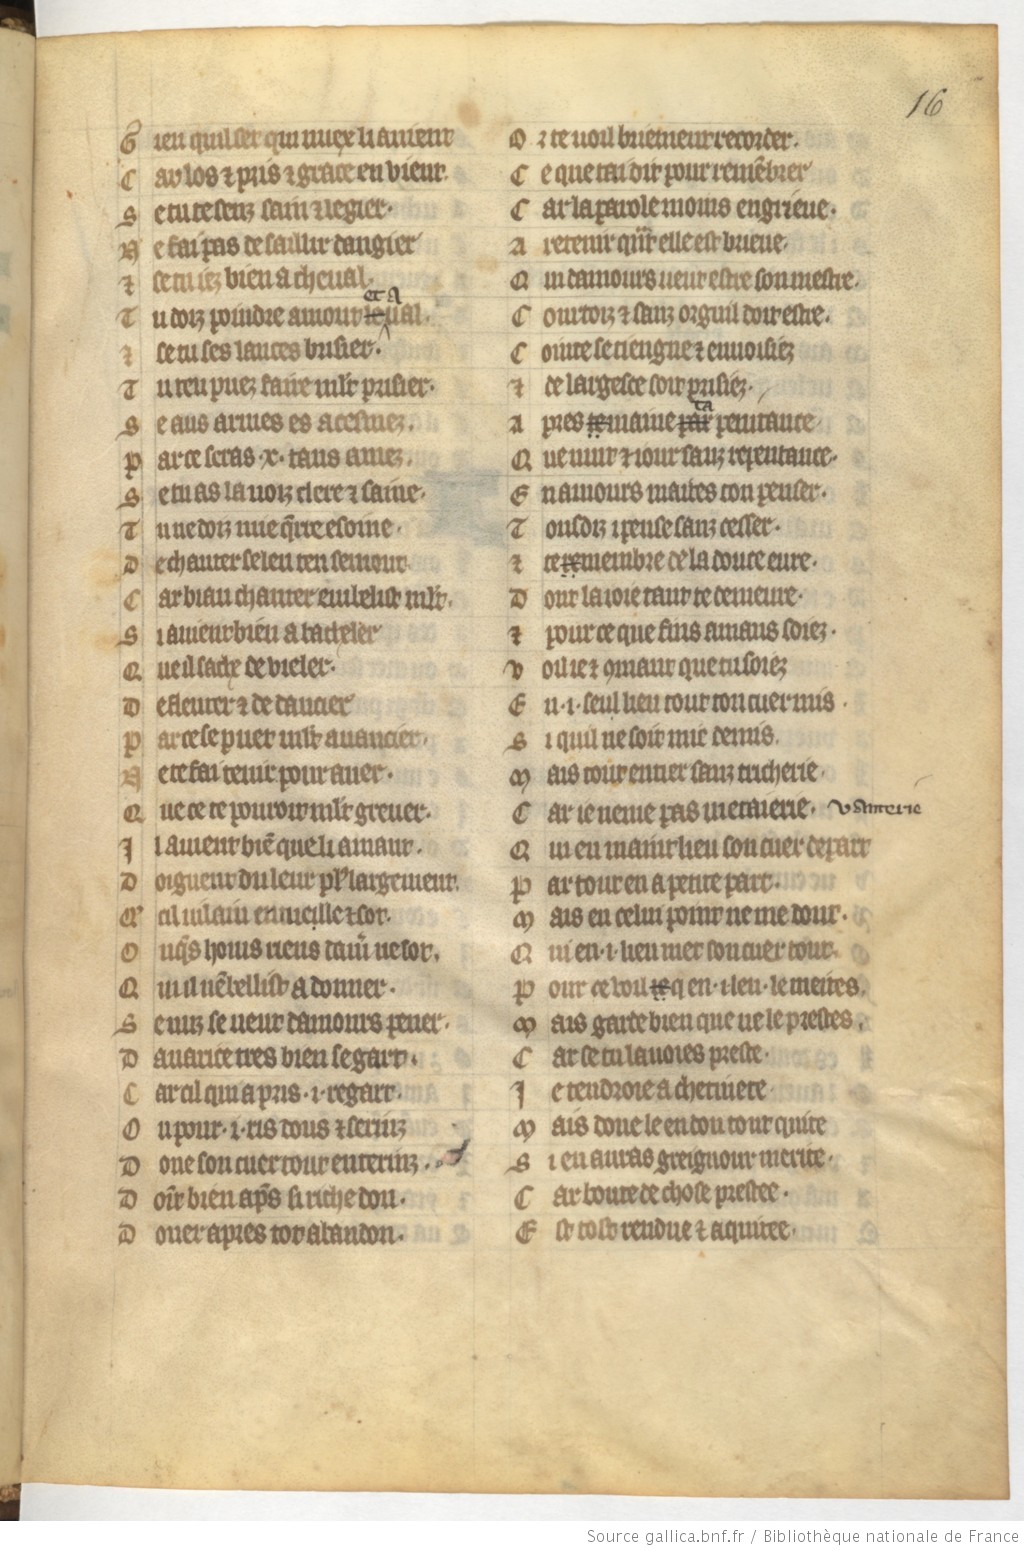 16
G ien quil set qui nuire li avient
C ar los & pris & grace en vient
S e tu te senz sain & legier.
N e fai pas de saillir dangier
& se tu iez bien a cheval
T u doiz poindre amont et aual.
& se tu ses lances brisier.
T u ten puez faire mlt prisier.
S e aus armes es acesmez.
P ar ce seras .x. tans amez.
S e tu as la uoiz clere & saine.
T u ne doiz mie q̃rre esoine.
D e chanter se leu ten semont
C ar biau chanter embelist mlt.
S i avient bien a bacheler
Q ue il sache de vieler.
D e fleuter & de dancier
P ar ce se puet mlt avancier.
N e te fai tenir pour aver.
Q ue ce te pourroit mlt grever.
I l avient biẽ que li amant.
D oignent du leur pl' largement.
Et cil vilain entulle & sot.
O nq̃s homs riens damer ne sot.
Q ui il nẽbellist a donner.
S e nuz se veut damours pener.
D avarice tres bien se gart.
C ar cil qui a pris .i. regart.
O u pour .i. ris dous & seriz
D one son cuer tout enteriz.
D oit bien ap̃s si riche don.
D oner apres tot abandon.
O r te voil briement recorder.
C e que tai dit pour remẽbrer
C ar la parole moins engrieve.
A retenir quãt elle est brieve.
Q ui damours veut estre son mestre.
C ourtois & sanz orguil doit estre.
C ointe se tiengne & envoisiez
& de largesce soit prisiez.
A pres temaine ta penitance
Q ue nuit & iour sanz repentance.
E n amours mattes ton penser.
T ousdiz i pense sanz cesser.
& te remembre de la douce eure.
D ont la ioie tant te demeure.
& pour ce que fins amans soiez.
V oil ie & 9mant que tu soiez
E n .i. seul lieu tout ton cuer mis.
S i quil ne soit mie demis.
M ais tout entier sanz tricherie.
C ar ie neme pas metaierie. vanterie
Q ui en maint lieu son cuer depart
P ar tout en a petite part.
M ais en celui point ne me dout.
Q ui en .i. lieu met son cuer tout.
P our ce voil q en .i. leu le mettes.
M ais garde bien que ne le prestes.
C ar se tu lavoies preste.
I e tendroie a chetivete
M ais done le en don tout quite
S i en auras greignour merite.
C ar bonte de chose prestee.
E st tost rendue & aquitee.
Source gallica.bnf.fr / Bibliothèque nationale de France